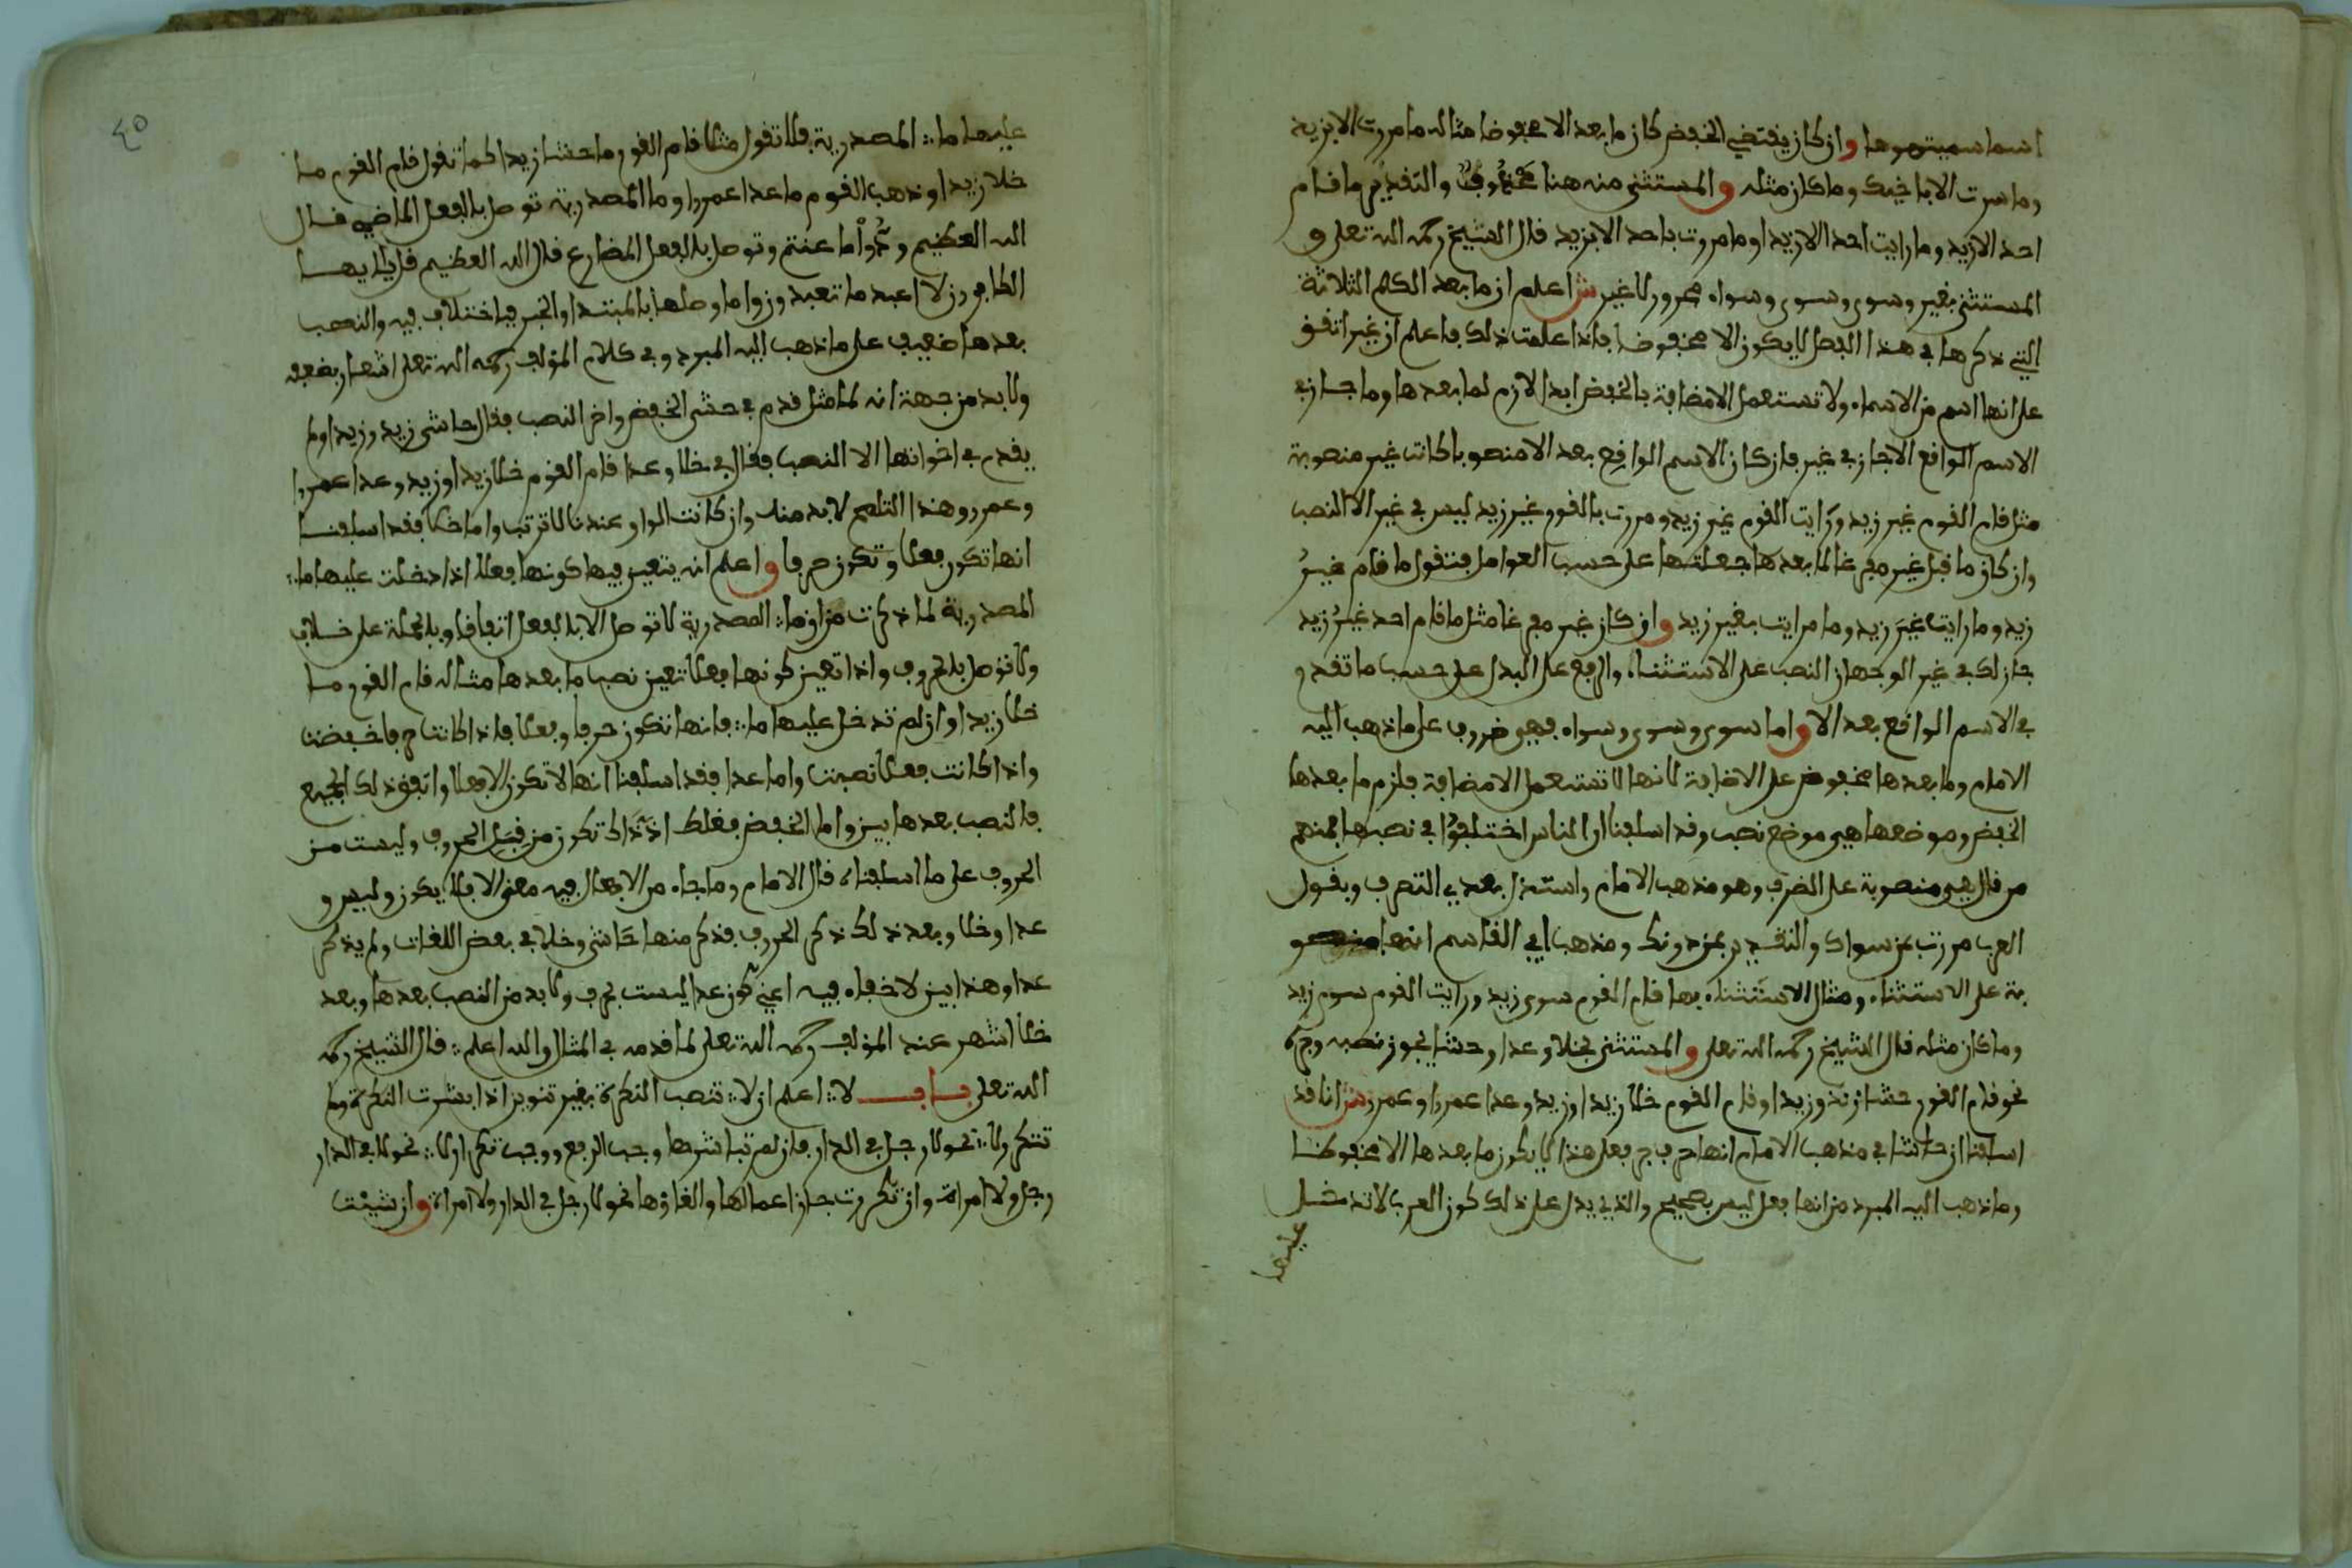 اسما سميتموها وان كان يقتضي الخفض كان ما بعد الا مخفوضا مثاله ما مررت الا بزيد
وما سرت الا باخيك وما كان مثله والمستثنى منه هنا محذوف والتقدير ما قام
احد الا زيد وما رايت احدا الا زيدا وما مررت باحد الا بزيد قال الشيخ رحمه الله تعلى و
المستثنى بغير وسوى وسوى وسواء مجرور لا غير ش اعلم ان ما بعد الكلم الثلاثة
التي ذكرها في هذا الفصل لا يكون الا مخفوضا فاذا علمت ذلك فاعلم ان غير اتفق
على انها اسم من الاسماء ولا تستعمل الا مضافة فالخفض ابدا لازم لما بعدها وما جاز في
الاسم الواقع الا جاز في غير فان كان الاسم الواقع بعد الا منصوبا كانت غير منصوبة
مثل قام القوم غير زيد ورايت القوم غير زيد ومررت بالقوم غير زيد ليس في غير الا النصب
وان كان ما قبل غير مفرغا لما بعدها جعلتها على حسب العوامل فتقول ما قام غير
زيد وما رايت غير زيد وما مرايت بغير زيد وان كان غير مفرغا مثل ما قام احد غير زيد
جاز لك في غير الوجهان النصب على الاستثناء والرفع على البدل على حسب ما تقدم و
في الاسم الواقع بعد الا واما سوى وسوى وسواء فهي ظروف على ما ذهب اليه
الامام وما بعدها مخفوض على الاضافة لانها لا تستعمل الا مضافة فلزم ما بعدها
الخفض وموضعها هي موضع نصب وقد اسلفنا ان الناس اختلفوا في نصبها فمنهم
من قال هي منصوبة على الظرف وهو مذهب الامام واستدل بعدم التصرف وبقول
العرب مررت بمن سواك والتقدير بمن دونك ومذهب ابي القاسم انها منصو
بة على الاستثناء ومثال الاستثناء بها قام القوم سوى زيد ورايت القوم سوى زيد
وما كان مثله قال الشيخ رحمه الله تعلى والمستثنى بخلا وعدا وحشا يجوز نصبه وجره
نحو قام القوم حشا زيد وزيدا وقام القوم خلا زيدا وزيد وعدا عمرا وعمرو ش انا قد
اسلفنا ان حاشا في مذهب الامام انها حرف جر فعلى هذا لا يكون ما بعدها الا مخفوضا
وما ذهب اليه المبرد من انها فعل ليس بصحيح والذي يدل على ذلك كون العرب لا تدخل
عليها
٤٥
عليها ما المصدرية فلا تقول مثلا قام القوم ما حشا زيدا كما تقول قام القوم ما
خلا زيدا وذهب القوم ما عدا عمرا وما المصدرية توصل بالفعل الماضي قال
الله العظيم ودوا ما عنتم وتوصل بالفعل المضارع قال الله العظيم قل يا ايها
الكافرون لا اعبد ما تعبدون واما وصلها بالمبتدا والخبر فيه اختلاف فيه والنصب
بعدها ضعيف على ما ذهب اليه المبرد وفي كلام المؤلف رحمه الله تعلى اشعار بضعفه
ولا بد من جهة انه لما مثل قدم في حشى الخفض واخر النصب فقال حاشى زيد وزيدا ولم
يقدم في اخواتها الا النصب فقال في خلا وعدا قام القوم خلا زيدا وزيد وعدا عمرا
وعمرو وهذا التلمح لا بد منه وان كانت الواو عندنا لا ترتب واما خلا فقد اسلفنا
انها تكون فعلا وتكون حرفا واعلم انه يتعين فيها كونها فعلا اذا دخلت عليها ما
المصدرية لما ذكرت من ان ما المصدرية لا توصل الا بالفعل اتفاقا وبالجملة على خلاف
ولا توصل بالحروف واذا تعين كونها فعلا تعين نصب ما بعدها مثاله قام القوم ما
خلا زيدا وان لم تدخل عليها ما فانها تكون حرفا وفعلا فاذا كانت حرفا خفضت
واذا كانت فعلا نصبت واما عدا فقد اسلفنا انها لا تكون الا فعلا واتفق ذلك الجميع
فالنصب بعدها بين واما الخفض فغلط اذ ذاك تكون من قبيل الحروف وليست من
الحروف على ما اسلفناه قال الامام وما جاء من الافعال فيه معنى الا فلا يكون وليس و
عدا وخلا وبعد ذلك ذكر الحروف فذكر منها حاشى وخلا في بعض اللغات ولم يذكر
عدا وهذا بين لا خفاء فيه اعني كون عدا ليست بحرف ولا بد من النصب بعدها وبعد
خلا اشهر عند المؤلف رحمه الله تعلى لما قدمه في المثال والله اعلم قال الشيخ رحمه
الله تعلى باب لا اعلم ان لا تنصب النكرة بغير تنوين اذا باشرت النكرة ولم
تتكرر لا نحو لا رجل في الدار فان لم تباشرها وجب الرفع ووجب تكرار لا نحو لا في الدار
رجل ولا امراة وان تكررت جاز اعمالها والغاؤها نحو لا رجل في الدار ولا امراة وان شيت